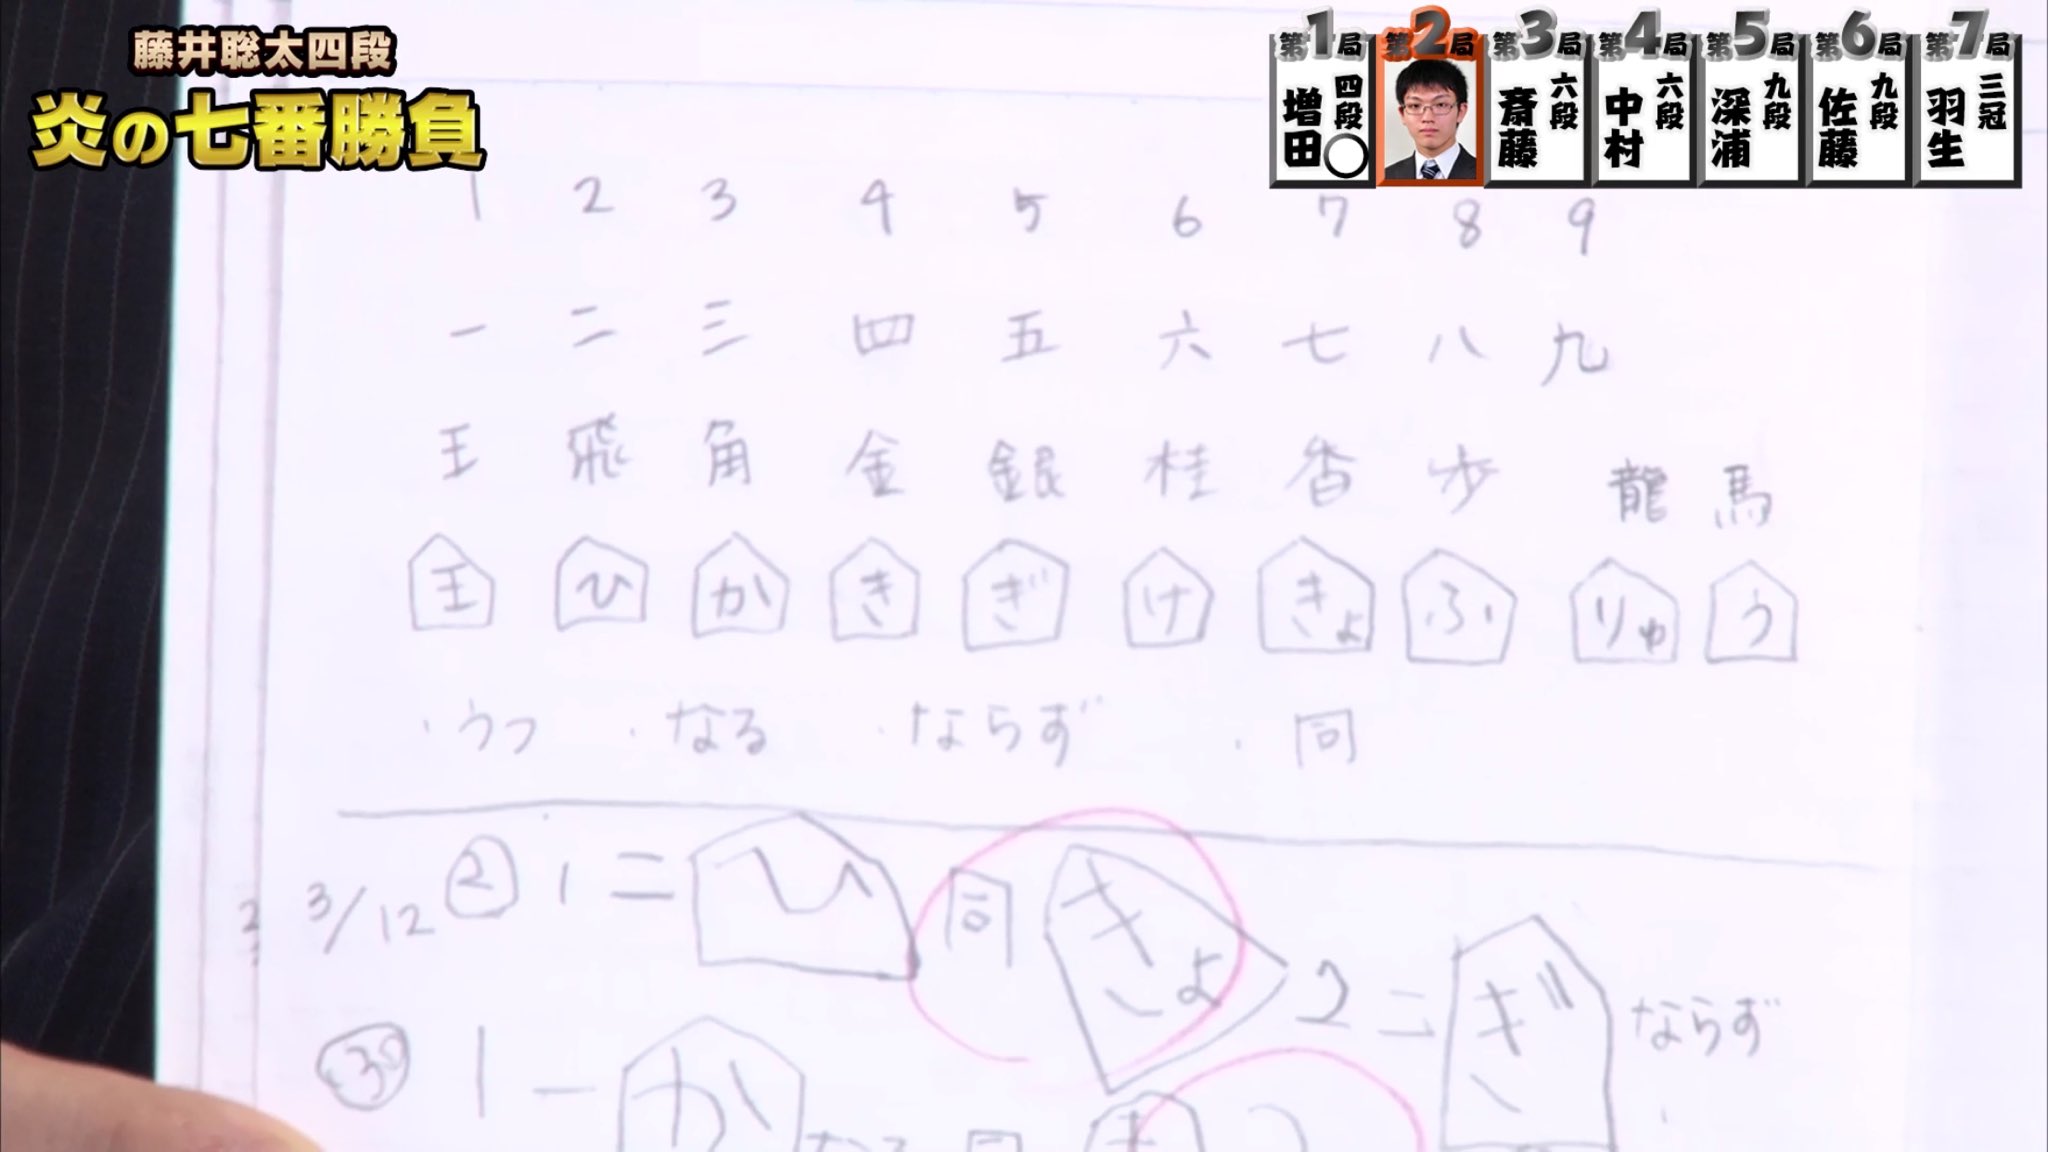 藤井聡太四段
炎の七番勝負
第1局 第2局 第3局 第4局 第5局 第6局 第7局
増田四段○ 斎藤六段 中村六段 深浦九段 佐藤九段 羽生三冠
1 2 3 4 5 6 7 8 9
一 二 三 四 五 六 七 八 九
王 飛 角 金 銀 桂 香 歩 龍 馬
王 ひ か き ぎ け きょ ふ りゅ う
・うつ ・なる ・ならず ・同
3/12 ② 1二ひ 同きょ 2二ぎ ならず
③ 1一か なる 同